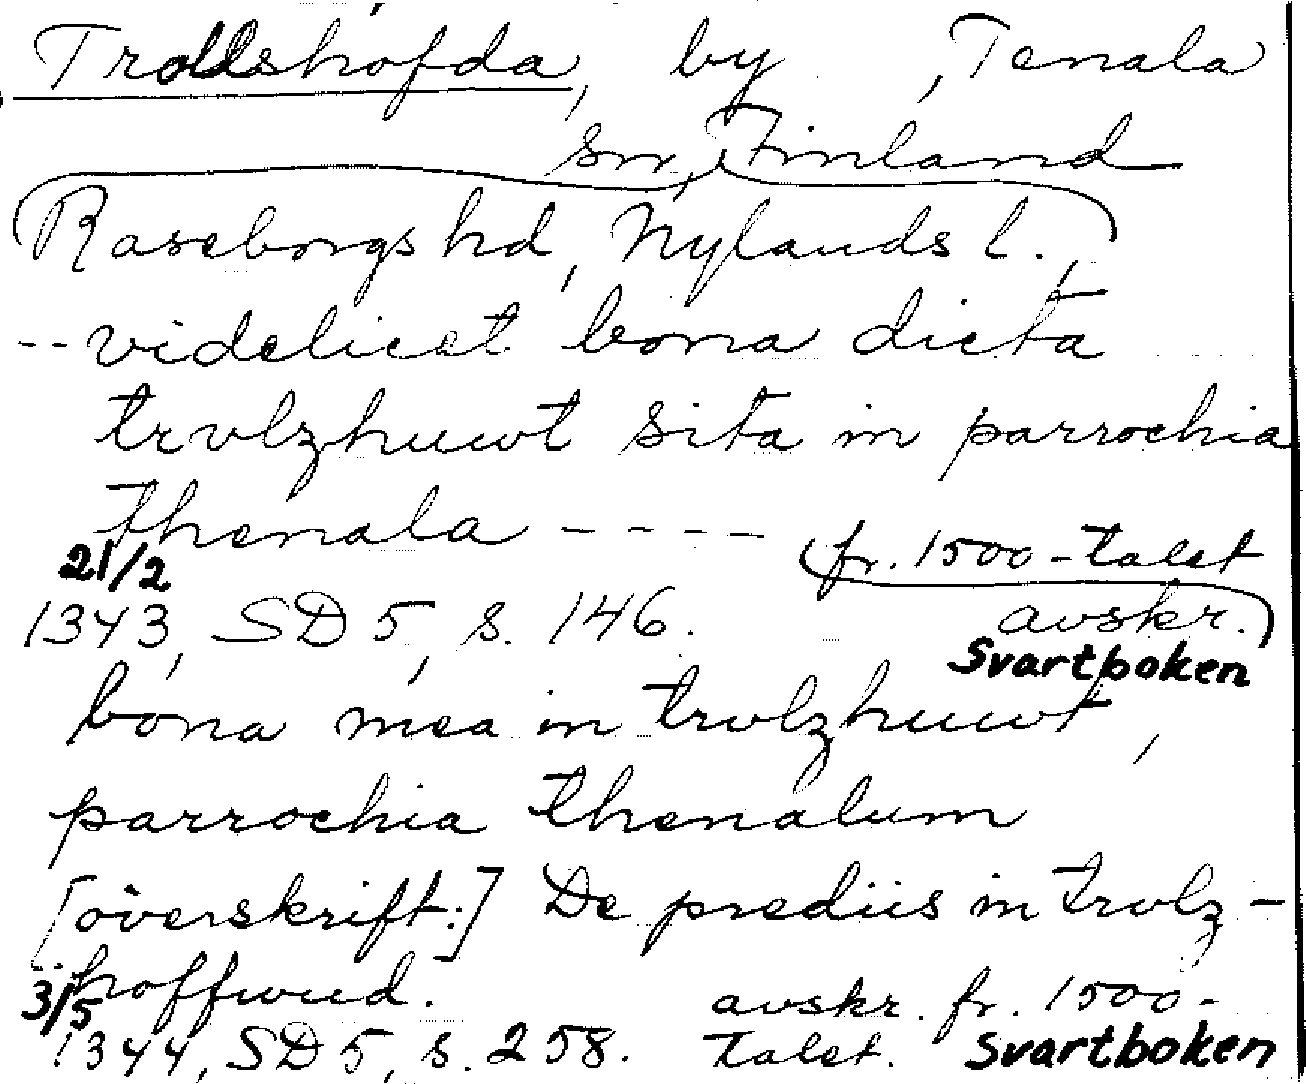 Trollshofda, by , Tenala
sn, Finland
(Raseborgs hd, Nylands l.)
-- videlicet bona dicta
trvlzhuwt sita in parrochia
thenala - - - -
21/2
1343, SD 5, s. 146.
(fr. 1500-talet
avskr.)
Svartboken
bona mea in trvlzhuwt,
parrochia thenalum
[överskrift:] De prediis in trvlz-
hoffwud.
3/5
1344, SD 5, s. 258.
avskr. fr. 1500-
talet. Svartboken